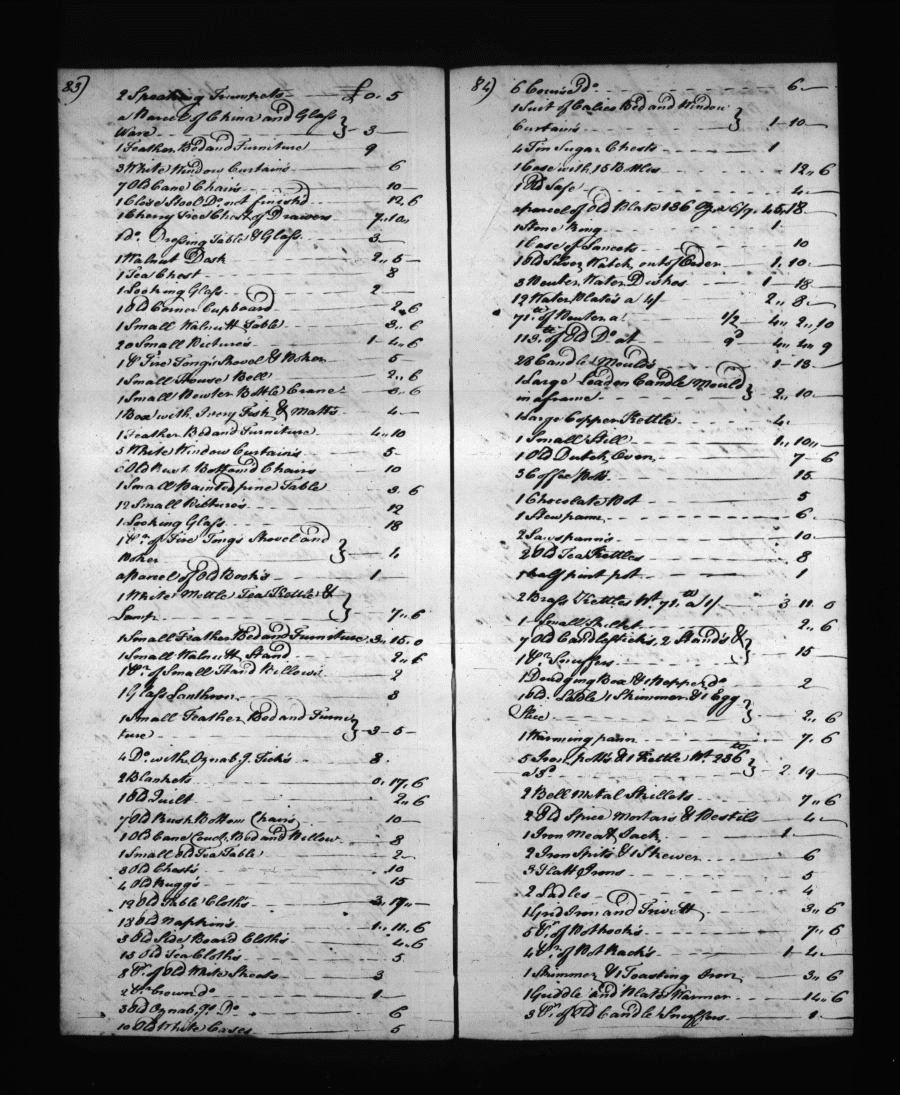 83)
2 Speaking Trumpets £0. 5
a Parcel of China and Glass
Ware } 3
1 Feather Bed and Furniture 9
3 White Window Curtains 6
7 Old Cane Chairs 10
1 Close Stool Do. not finish'd 12,6
1 Cherry Tree Chest of Drawers 7,10
1 do. Dressing Table & Glass 3
1 Walnut Desk 2,,5
1 Tea Chest 8
1 Looking Glass 2
1 Old Corner Cupboard 2,6
1 Small Walnutt Table 3,,6
20 Small Pictures 1 4,,6
1 Pr. Fire Tongs Shovel & Poker 5
1 Small House Bell 2,,6
1 Small Pewter Bottle Crane 6
1 Box with Ivory Fish & Matts 4
1 Feather Bed and Furniture 4,,10
3 White Window Curtains 5
6 Old Rush Bottom'd Chairs 10
1 Small Painted pine Table 3. 6
12 Small Pictures 12
1 Looking Glass 18
1 Pr. of Fire Tongs Shovel and
Poker } 4
a Parcel of Old Books 1
1 White Mettle Tea Kettle &
Lamp } 7,,6
1 Small Feather Bed and Furniture 3,,15,0
1 Small Walnutt Stand 2,,6
1 Pr. of Small Hand Billows 2
1 Glass Lanthorn 8
1 Small Feather Bed and Furni
ture } 3 5
4 Do. with Oznab.g. Ticks 8
2 Blankets 0,17,6
1 Old Quilt 2,,6
7 Old Rush Bottom Chairs 10
1 Old Cane Couch, Bed and Pillow 8
1 Small Old Tea Table 2
3 Old Chests 10
4 Old Ruggs 15
19 Old Table Cloths 3,17
13 Old Napkins 1,,11,6
3 Old Side Board Cloths 4,6
13 Old Tea Cloths 5
8 Pr. of Old White Sheets 3
2 Pr. brown do 1
3 Old Oznab.gs Do 6
10 Old White Cases 5
84)
6 Coarse Do. 6
1 Suit of Calico Bed and Window
Curtains } 1 10
4 Tin Sugar Chests 1
1 Case with 15 Bottles 12,,6
1 Old Safe 4
a parcel of Old Plate 136 Oz a 6/9. 45,18
1 Stone Ring 1
1 Case of Lancets 10
1 Old Silver Watch out of Order 1,10
3 Pewter Water Dishes 1 18
12 Water Plates a 4/ 2,,8
71 lb of Pewter a 1/2 4,,2,,10
113 lb of Old Do at 9d 4,,4,,9
28 Candle Moulds 1 13
1 Large Leaden Candle Mould
in a frame } 2,,10
1 Large Copper Kettle 4
1 Small Still 1,,10
1 Old Dutch Oven 7 6
3 Coffee Pott 15
1 Chocolate Pot 5
1 Stewpann 6
2 Sawspanns 10
2 Old Tea Kettles 8
1 half pint pot 1
2 Brass Kettles Wt. 71 lb a 1/ 3 11. 0
1 Small Skillet 2,,6
7 Old Candlesticks, 2 Stands &
1 Pr. Snuffers } 15
1 Drudging Box & 1 Pepper do 2
1 Old Ladle 1 Skimmer & 1 Egg
Slice } 2,,6
1 Warming pann 7. 6
5 Iron potts & 1 Kettle Wt. 236 lb
a 3d } 2 19
2 Bell Metal Skillets 7,,6
2 Old Spice Mortars & Pestils 4
1 Iron Meat Jack 1
2 Iron Spits & 1 Skewer 6
3 Flatt Irons 5
2 Ladles 4
1 Grid Iron and Trivett 3,,6
5 Pr. of Pothooks 7,,6
4 Pr. of Pot Racks 1 4
1 Skimmer & 1 Toasting Iron 3,,6
1 Griddle and Plate Warmer 14,,6
3 Pr. of Old Candle Snuffers 1